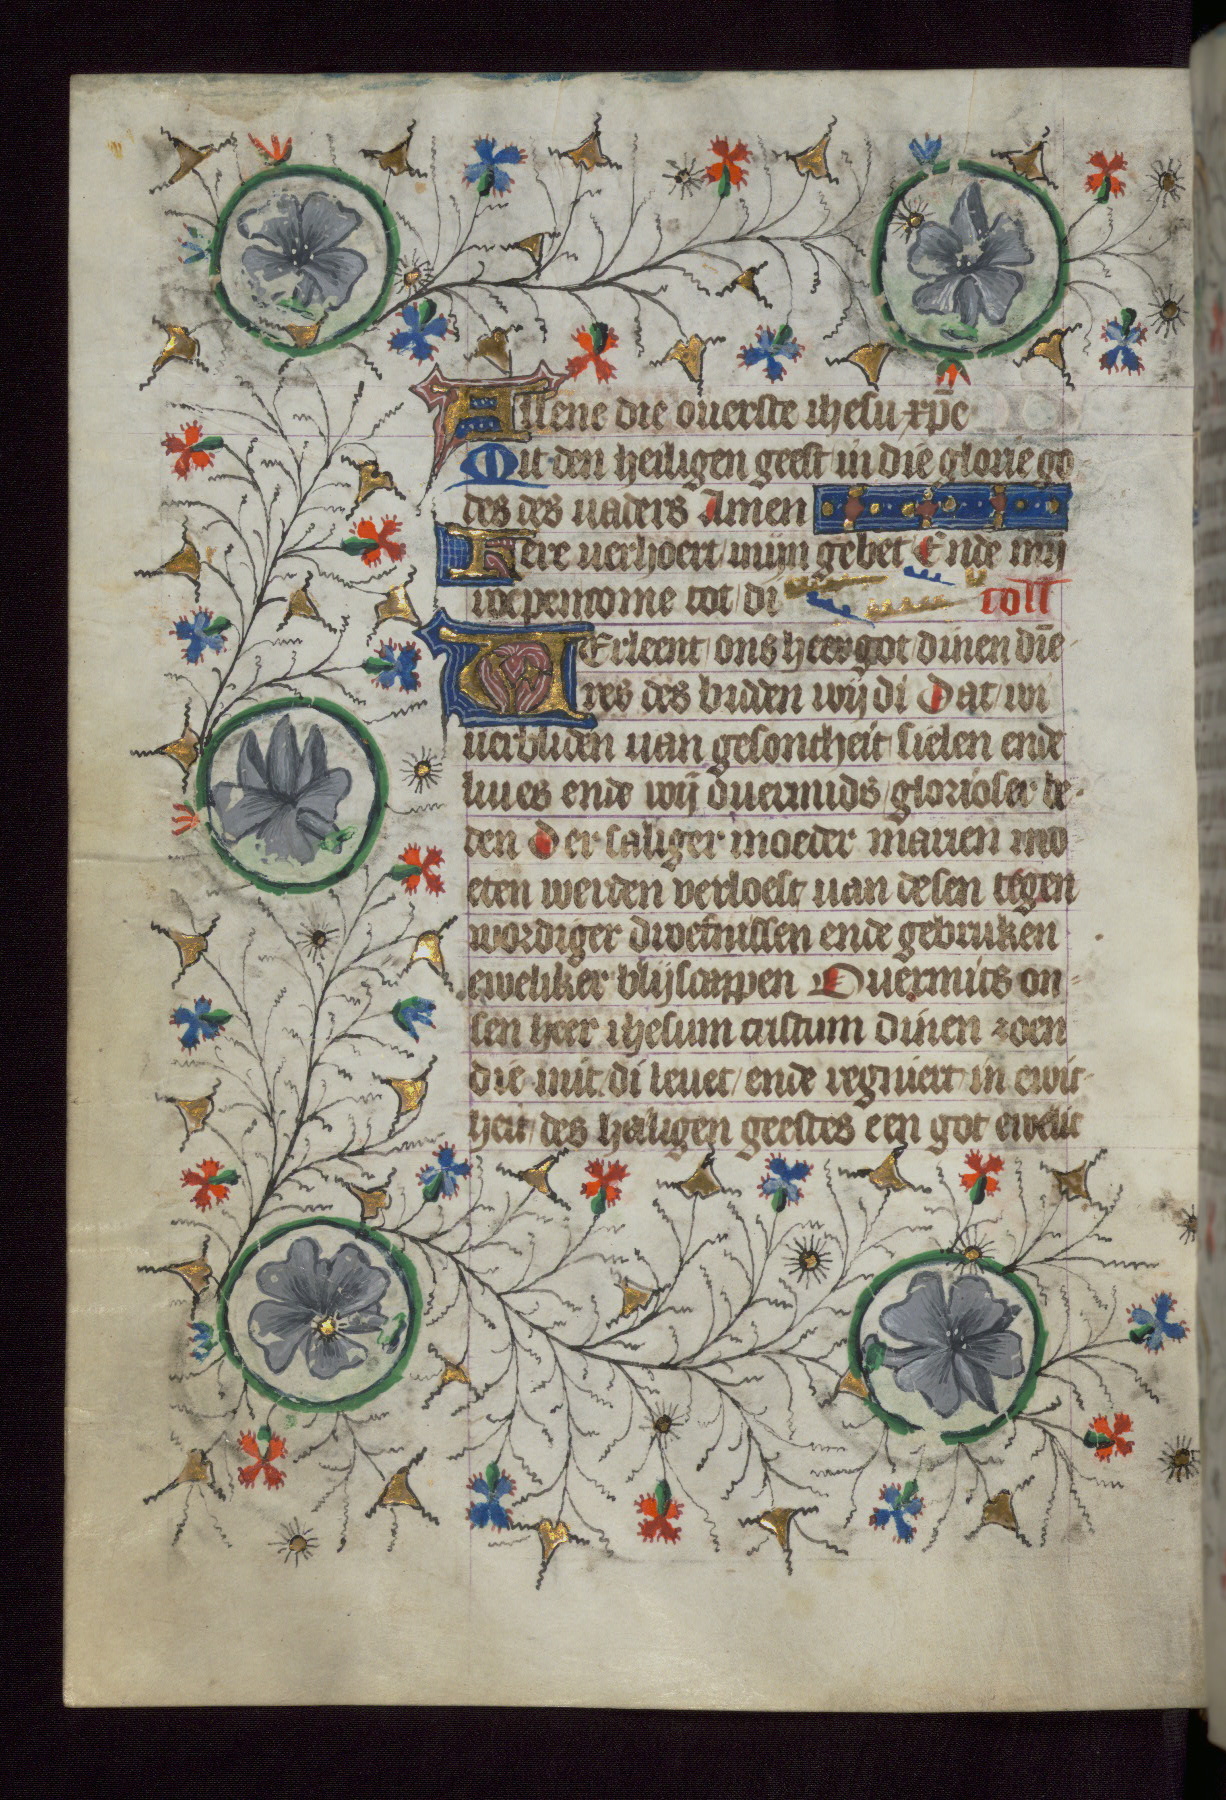 Allene die ouerste ihesu xp̄e
Mit den heiligen geest in die glorie go
des des uaders Amen
Here uerhoert mijn gebet Ende mij
roepen come tot di coll
VErleent ons heer got dinen die
res des bidden wij di Dat wi
uerbliden uan gesontheit sielen ende
liues ende wij ouermids glorioser be
den Der saliger moeder marien mo
eten werden verloest uan desen tegen
wordiger droefnissen ende gebruken
eweliker blijscappen Ouermits on
sen heer ihesum cristum dinen zoen
die mit di leuet ende regniert in ewic
heit des heiligen geestes een got ewelic